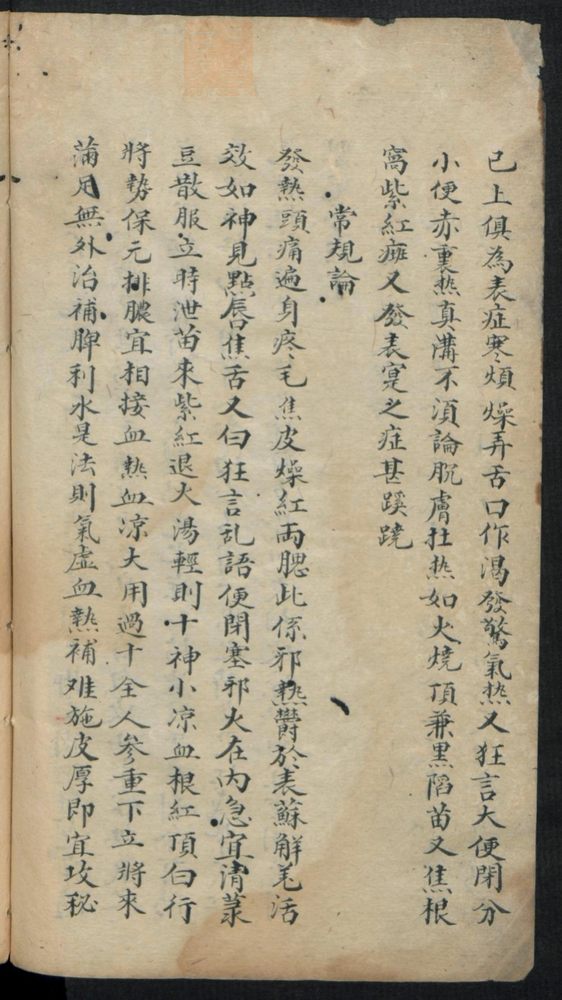 已上俱為表症寒煩燥弄舌口作渴發驚氣热又狂言大便閉分
小便赤裏热真溝不湏論肌膚壮热如火燒頂兼黒陷苗又焦根
窩紫紅癍又發表寔之症甚蹊蹺
常規論
發熱頭痛遍身疼毛焦皮燥紅兩腮此係邪熱欝於表蘇解羌活
效如神見點唇焦舌又白狂言乱語便閉塞邪火在内急宜清菉
豆散服立時泄苗來紫紅退火湯輕則十神小凉血根紅頂白行
將勢保元排膿宜相接血熱血凉大用過十全人參重下立將來
蒲足無外治補脾利水是法則氣虛血熱補难施皮厚即宜攻秘